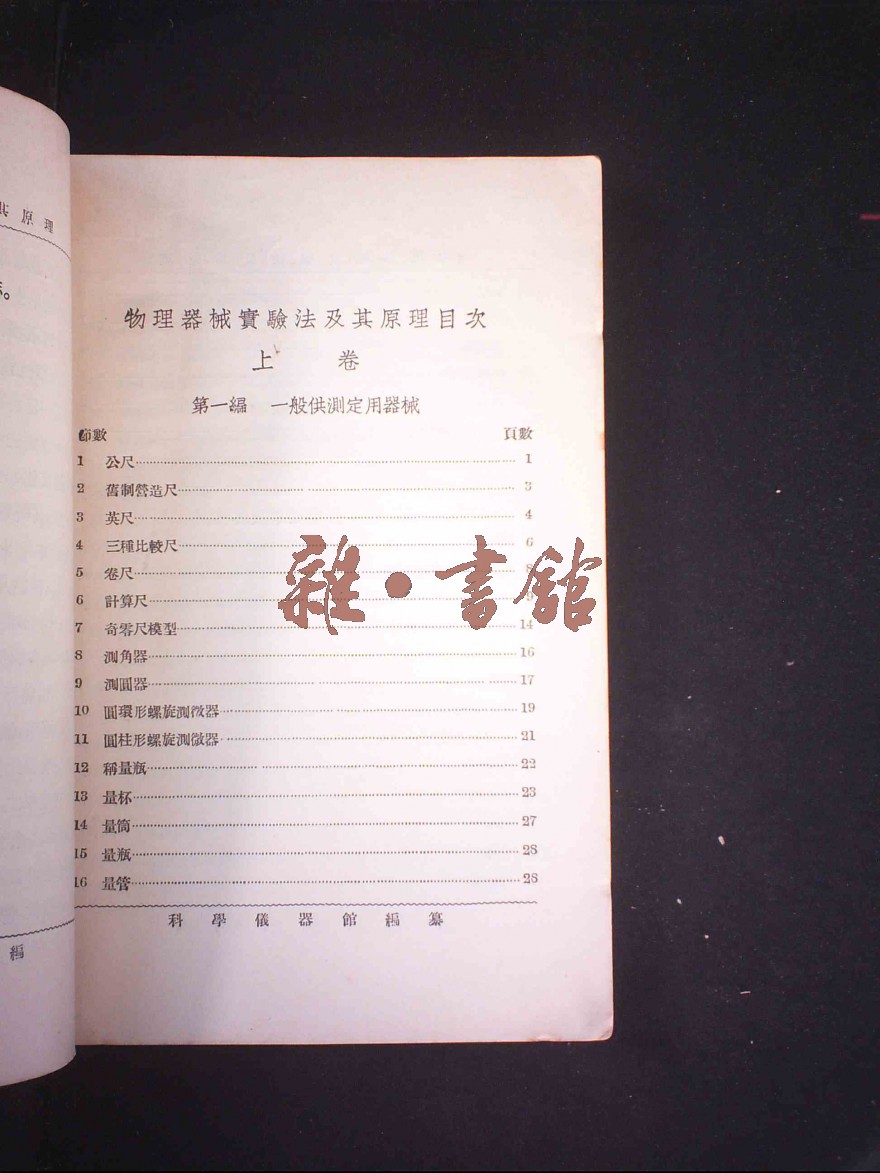 其原理
。
編
物理器械實驗法及其原理目次
上 卷
第一編 一般供測定用器械
節數 頁數
1 公尺 1
2 舊制營造尺 3
3 英尺 4
4 三種比較尺 6
5 卷尺 8
6 計算尺 9
7 奇零尺模型 14
8 測角器 16
9 測圓器 17
10 圓環形螺旋測微器 19
11 圓柱形螺旋測微器 21
12 稱量瓶 22
13 量杯 23
14 量筒 27
15 量瓶 28
16 量管 28
科學儀器館編纂
雜·書館